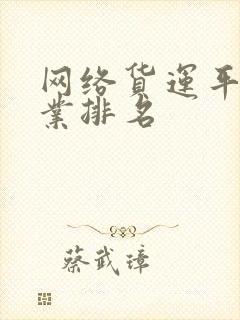 网络货运平
业排名
蔡武璋